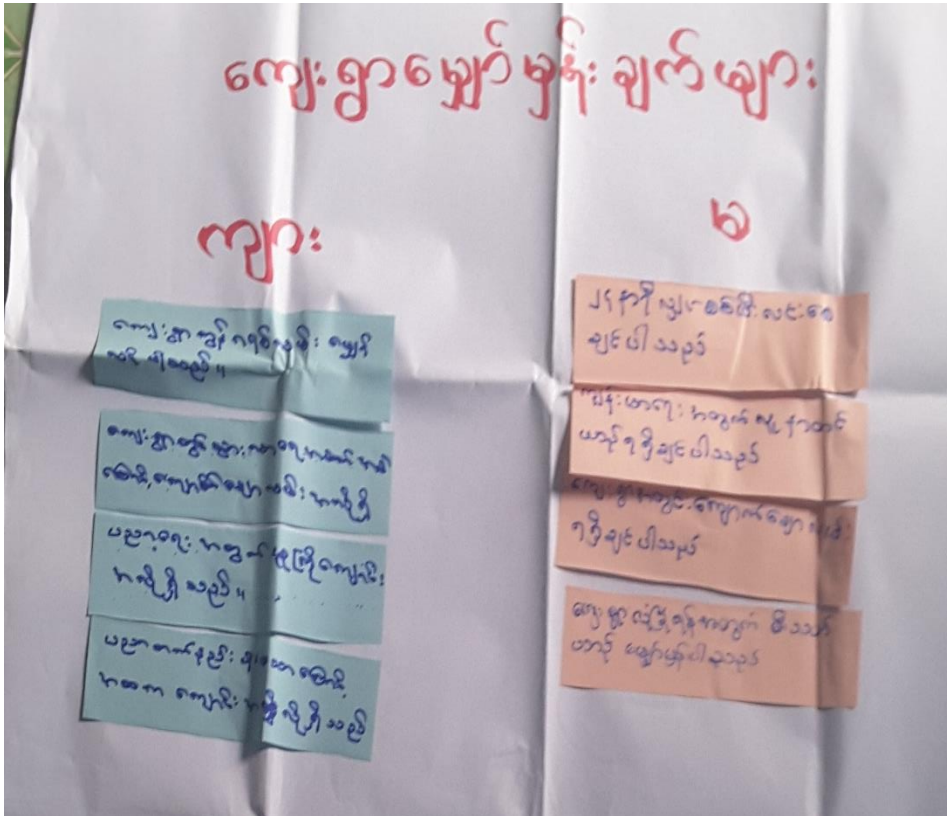 ကျေးရွာမျှော်မှန်းချက်များ
ကျား
ကျေးရွာ
လို ပါသည်။
ကျေးရွာတွင် သွားလာရေး အတွက်
ကြောင့် ကျောက်ချောလမ်း အလိုရှိ
ပညာရေး အတွက် မူကြိုကျောင်း
အလိုရှိသည်။
ပညာတတ်နည်းပါးသောကြောင့်
အထက ကျောင်း လိုရှိသည်
မ
၂၄ နာရီ လျှပ်စစ်မီးလင်းစေ
ချင်ပါသည်
ကျန်းမာရေး အတွက် လူနာတင်
ယာဉ် ရရှိချင်ပါသည်
ကျေးရွာအတွင်း ကျောက်ချောလမ်း
ရရှိချင်ပါသည်
ကျေးရွာ လုံခြုံရန်အတွက် မီးသတ်
ယာဉ် မျှော်မှန်းပါသည်